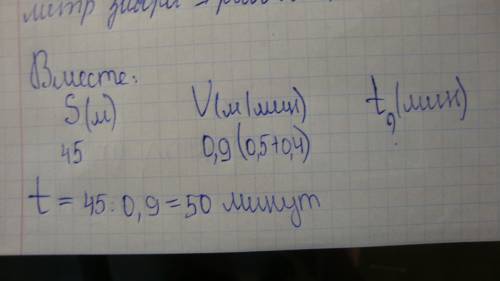 метр
Вместе:
S(м) V(м/мин) t,(мин)
45 0,9(0,5+0,4) ?
t = 45:0,9=50 минут